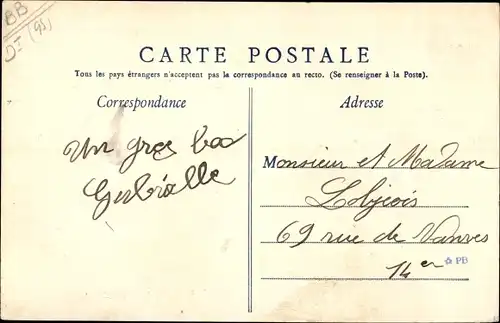 BB
DT (95)
CARTE POSTALE
Tous les pays étrangers n'acceptent pas la correspondance au recto. (Se renseigner à la Poste).
Correspondance
Un gros
Adresse
Monsieur et Madame
69 rue de Vanves
14er
PB